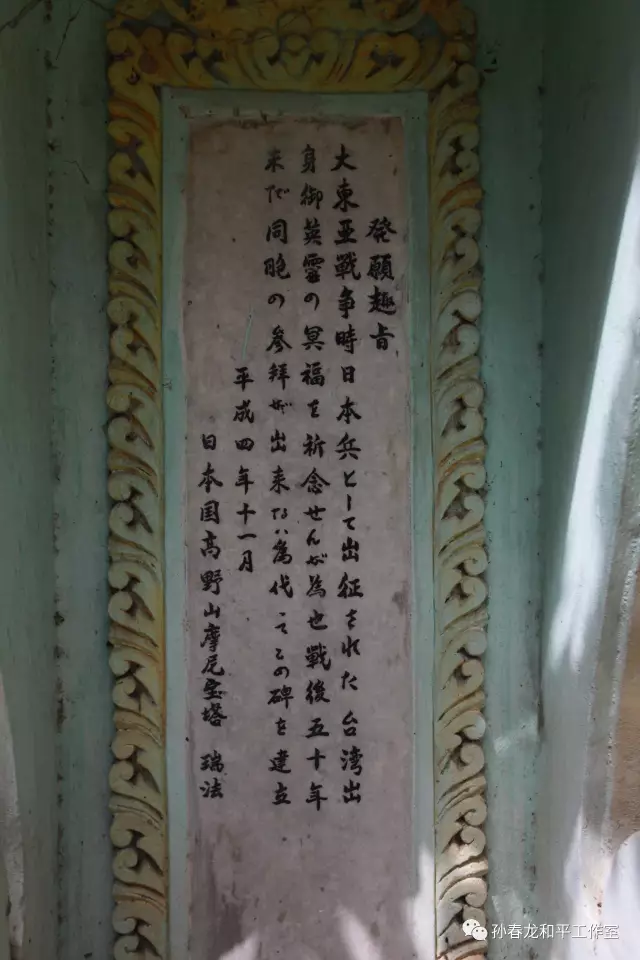 発願趣旨
大東亜戦争時日本兵として出征された台湾出
身御英霊の冥福を祈念せんが為也戦後五十年
未だ同胞の参拝が出来ない為代ってこの碑を建立
平成四年十一月
日本国高野山摩尼宝塔 瑞法
孙春龙和平工作室